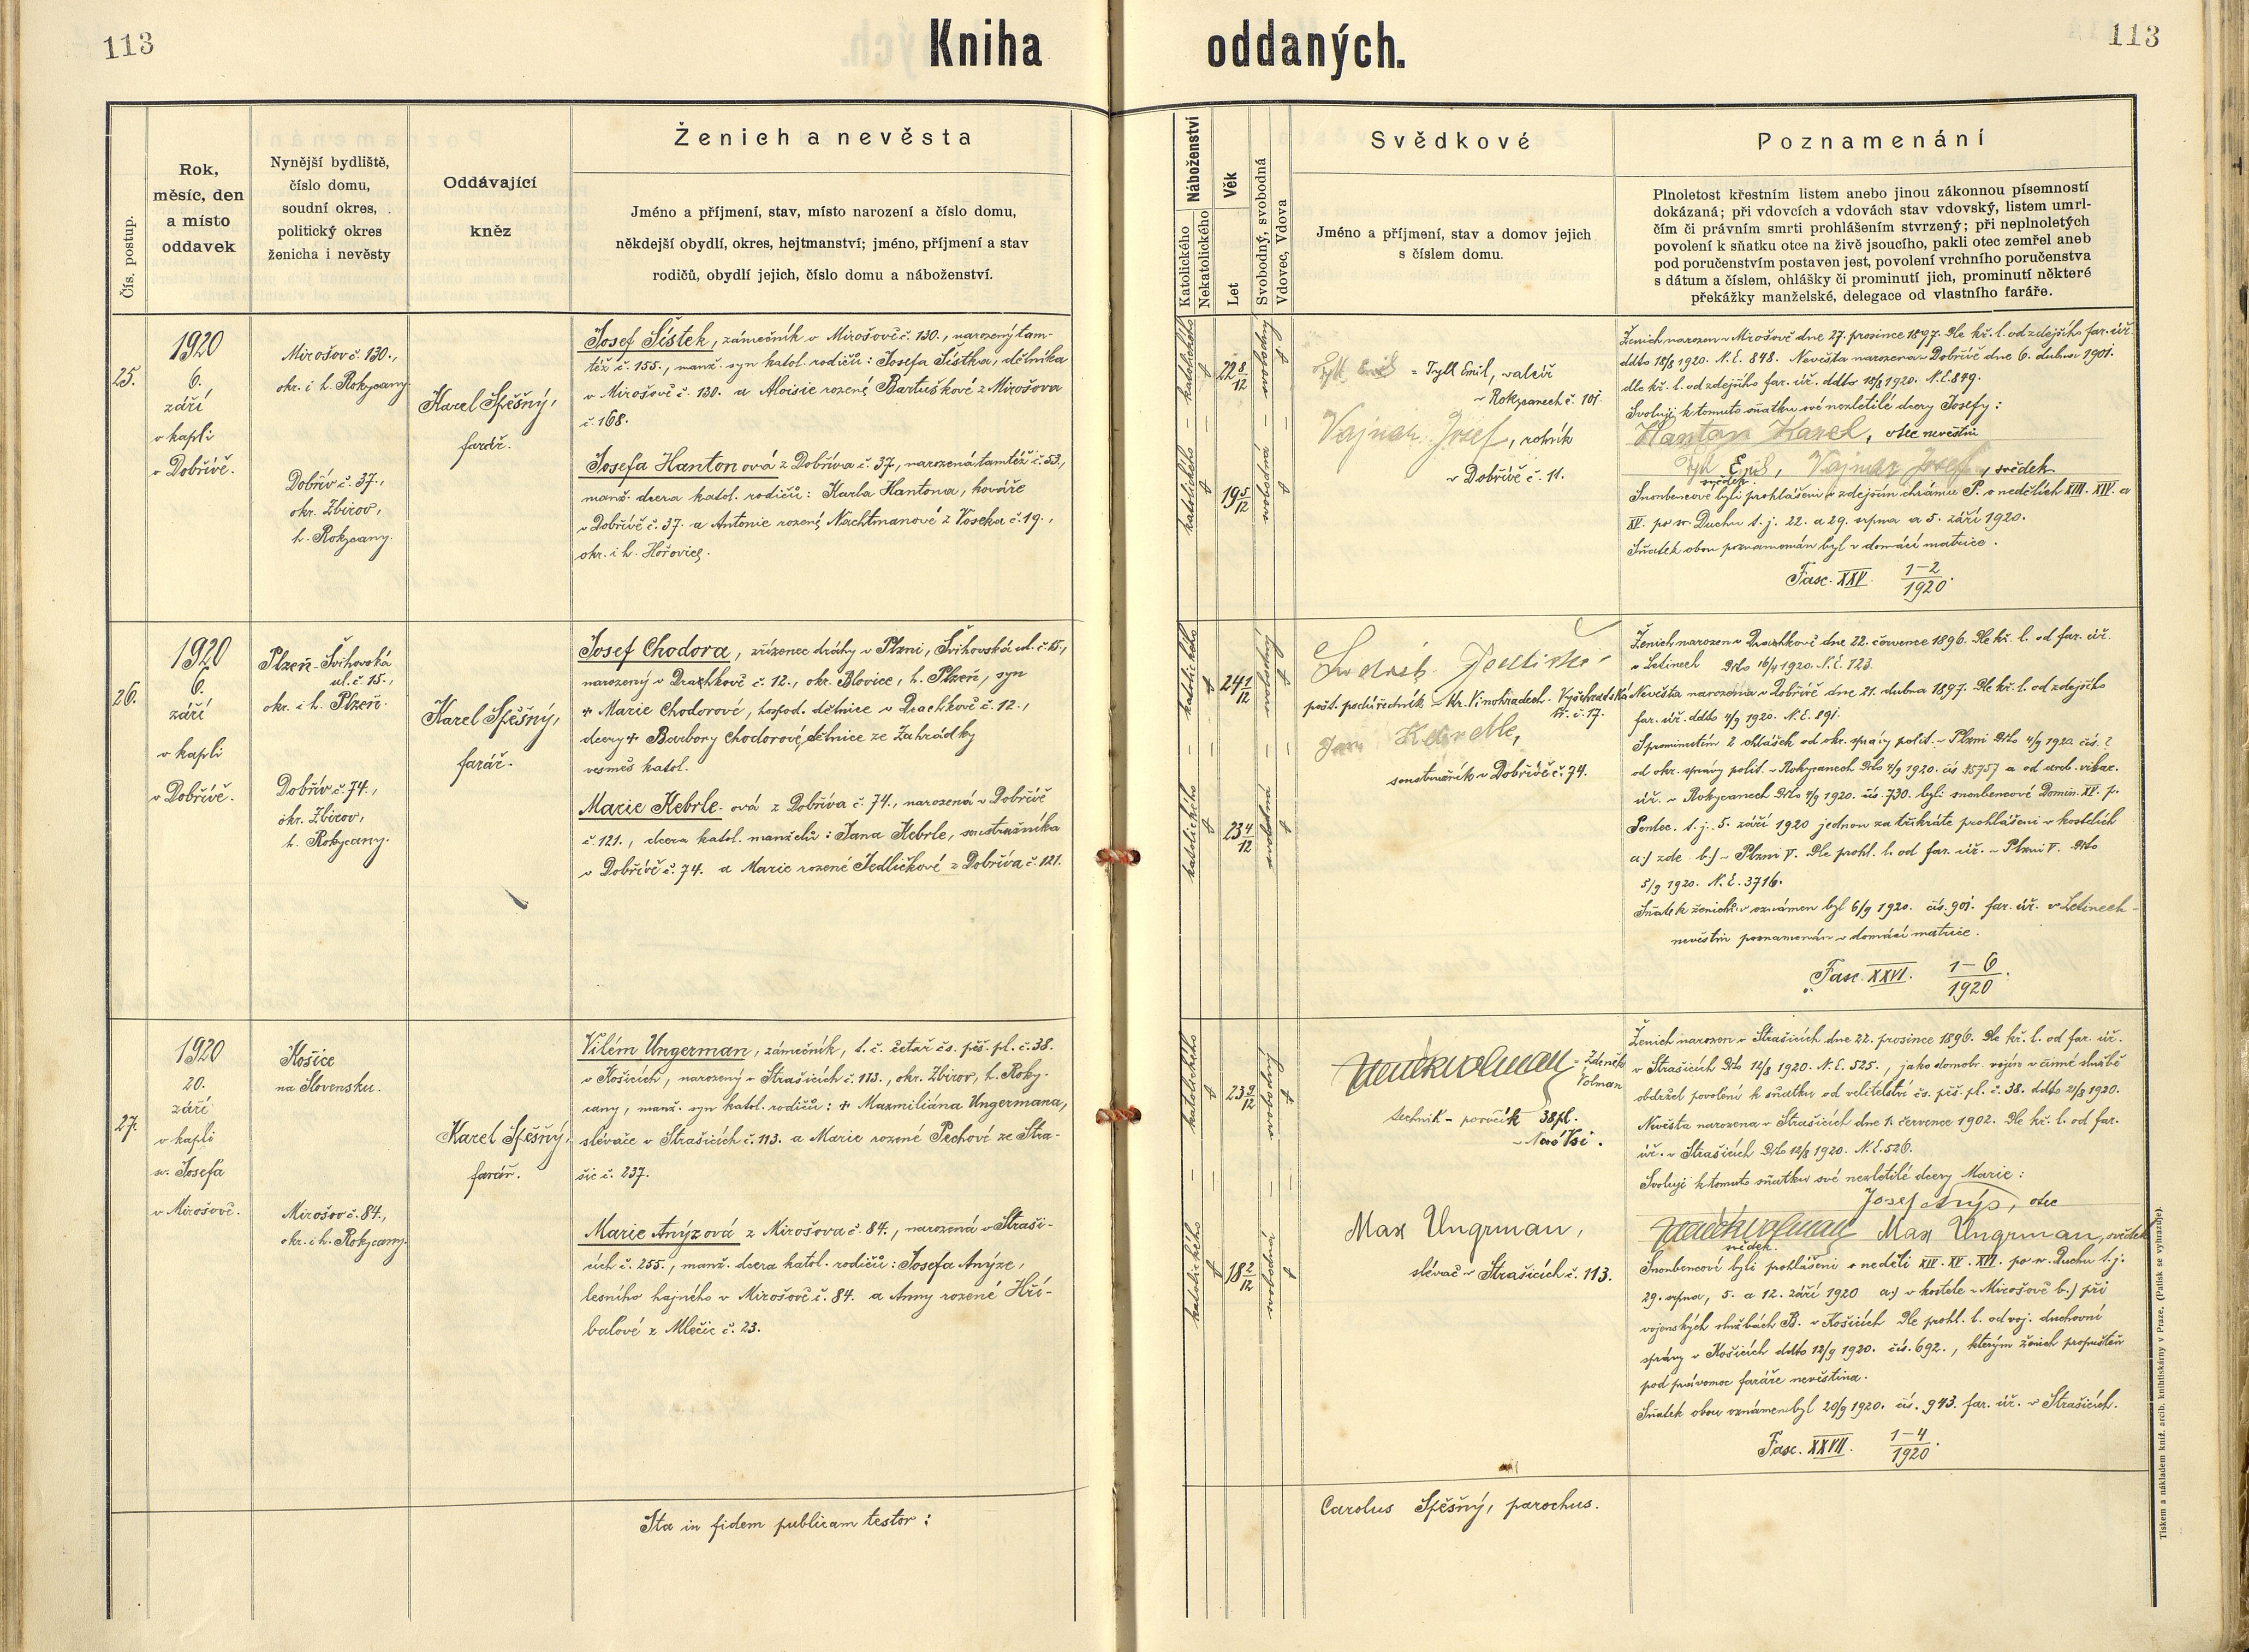 113
Kniha
oddaných.
113
Čís. postup.
Rok,
měsíc, den
a místo
oddavek
Nynější bydliště,
číslo domu,
soudní okres,
politický okres
ženicha i nevěsty
Oddávající
kněz
Ženich a nevěsta
Jméno a příjmení, stav, místo narození a číslo domu,
někdejší obydlí, okres, hejtmanství; jméno, příjmení a stav
rodičů, obydlí jejich, číslo domu a náboženství.
Náboženství
Katolického
Nekatolického
Věk
Let
Svobodný, svobodná
Vdovec, Vdova
Svědkové
Jméno a příjmení, stav a domov jejich
s číslem domu.
Poznamenání
Plnoletost křestním listem anebo jinou zákonnou písemností
dokázaná; při vdovcích a vdovách stav vdovský, listem umrl-
čím či právním smrti prohlášením stvrzený; při neplnoletých
povolení k sňatku otce na živě jsoucího, pakli otec zemřel aneb
pod poručenstvím postaven jest, povolení vrchního poručenstva
s dátum a číslem, ohlášky či prominutí jich, prominutí některé
překážky manželské, delegace od vlastního faráře.
25.
1920
6.
září
v kapli
v Dobřívě.
Mirošov č. 130.,
okr. i h. Rokycany.
Dobřív č. 37.,
okr. Zbirov,
h. Rokycany.
Karel Spěšný,
farář.
Josef Šístek, zámečník v Mirošově č. 130., narozený tam-
též č. 155., manž. syn katol. rodičů: Josefa Šístka, dělníka
v Mirošově č. 130. a Aloisie rozené Bartuškové z Mirošova
č. 168.
Josefa Hantonová z Dobříva č. 37., narozená tamtéž č. 53.,
manž. dcera katol. rodičů: Karla Hantona, kováře
v Dobřívě č. 37. a Antonie rozené Nachtmanové z Voseka č. 19.,
okr. i h. Hořovice.
katolického
22 8/12
svobodný
katolického
19 5/12
svobodná
Tyll Emil = Tyll Emil, valcíř
v Rokycanech č. 101.
Vajnar Josef, rolník
v Dobřívě č. 11.
Ženich narozen v Mirošově dne 27. prosince 1897. Dle kř. l. od zdejšího far. úř.
ddto 18/8 1920. N. E. 848. Nevěsta narozena v Dobřívě dne 6. dubna 1901.
dle kř. l. od zdejšího far. úř. ddto 18/8 1920. N. E. 849.
Svoluji k tomuto sňatku své nezletilé dcery Josefy:
Hanton Karel, otec nevěstin
Tyll Emil, Vajnar Josef, svědek
svědek
Snoubencové byli prohlášeni v zdejším chrámu P. o nedělích XIII. XIV. a
XV. po sv. Duchu t. j. 22. a 29. srpna a 5. září 1920.
Sňatek obou poznamenán byl v domácí matrice.
Fasc. XXV. 1-2/1920.
26.
1920
6.
září
v kapli
v Dobřívě.
Plzeň - Švihovská
ul. č. 15.,
okr. i h. Plzeň.
Dobřív č. 74.,
okr. Zbirov,
h. Rokycany.
Karel Spěšný,
farář.
Josef Chodora, zřízenec dráhy v Plzni, Švihovská ul. č. 15.,
narozený v Drachkově č. 12., okr. Blovice, h. Plzeň, syn
+ Marie Chodorové, hospod. dělnice v Drachkově č. 12.,
dcery + Barbory Chodorové, dělnice ze Zahrádky
vesměs katol.
Marie Kebrle-ová z Dobříva č. 74., narozená v Dobřívě
č. 121., dcera katol. manželů: Jana Kebrle, soustružníka
v Dobřívě č. 74. a Marie rozené Jedličkové z Dobříva č. 121.
katolického
24 1/12
svobodný
katolického
23 4/12
svobodná
pošt. podúředník v Kr. Vinohradech. Vyšehradská
tř. č. 17.
Jan Kebrle,
soustružník v Dobřívě č. 74.
Ženich narozen v Drachkově dne 22. července 1896. Dle kř. l. od far. úř.
v Letinech Ddto 16/4 1920. N. E. 123.
Nevěsta narozena v Dobřívě dne 21. dubna 1897. Dle kř. l. od zdejšího
far. úř. ddto 4/9 1920. N. E. 891.
S prominutím 2 ohlášek od okr. správy polit. v Plzni Ddto 4/9 1920. čís. ?
od okr. správy polit. v Rokycanech Ddto 4/9 1920. čís. 15757 a od arcib. vikar.
úř. v Rokycanech Ddto 4/9 1920. čís. 730. byli snoubencové Domin. XV. p.
Pentec. t. j. 5. září 1920 jednou za třikráte prohlášeni v kostelích
a.) zde b.) v Plzni V. Dle prohl. l. od far. úř. v Plzni V. Ddto
5/9 1920. N. E. 3716.
Sňatek ženichův oznámen byl 6/9 1920. čís. 901. far. úř. v Letinech -
nevěstin poznamenán v domácí matrice.
Fasc. XXVI. 1-6/1920.
27.
1920
20.
září
v kapli
sv. Josefa
v Mirošově.
Košice
na Slovensku.
Mirošov č. 84.,
okr. i h. Rokycany.
Karel Spěšný,
farář.
Vilém Ungerman, zámečník, t. č. četař čs. pěš. pl. č. 38.
v Košicích, narozený v Strašicích č. 113., okr. Zbirov, h. Roky-
cany, manž. syn katol. rodičů: + Maxmiliána Ungermana,
slévače v Strašicích č. 113. a Marie rozené Pechové ze Stra-
šic č. 237.
Marie Anýzová z Mirošova č. 84., narozená v Straši-
cích č. 255., manž. dcera katol. rodičů: Josefa Anýze,
lesního hajného v Mirošově č. 84. a Anny rozené Hří-
balové z Mlečic č. 23.
katolického
23 9/12
svobodný
katolického
18 2/12
svobodná
Zdeněk Volman = Zdeněk
Volman
technik - poručík 38 pl.
v Nové Vsi.
Max Ungrman,
slévač v Strašicích č. 113.
Ženich narozen v Strašicích dne 22. prosince 1896. Dle kř. l. od far. úř.
v Strašicích Ddto 12/8 1920. N. E. 525., jako domobr. vojín v činné službě
obdržel povolení k sňatku od velitelství čs. pěš. pl. č. 38. ddto 21/8 1920.
Nevěsta narozena v Strašicích dne 1. července 1902. Dle kř. l. od far.
úř. v Strašicích Ddto 12/8 1920. N. E. 526.
Svoluji k tomuto sňatku své nezletilé dcery Marie:
Josef Anýz, otec
Zdeněk Volman Max Ungrman, svědek
svědek.
Snoubencové byli prohlášeni v neděli XIV. XV. XVI. po sv. Duchu t. j.
29. srpna, 5. a 12. září 1920 a.) v kostele v Mirošově b.) při
vojenských službách B. v Košicích Dle prohl. l. od voj. duchovní
správy v Košicích ddto 12/9 1920. čís. 692., kterým ženich propuštěn
pod právomoc faráře nevěstina.
Sňatek obou oznámen byl 20/9 1920. čís. 943. far. úř. v Strašicích.
Fasc. XXVII. 1-4/1920.
Ita in fidem publicam testor:
Carolus Spěšný, parochus.
Tiskem a nákladem kníž. arcib. knihtiskárny v Praze. (Patisk se vyhrazuje).